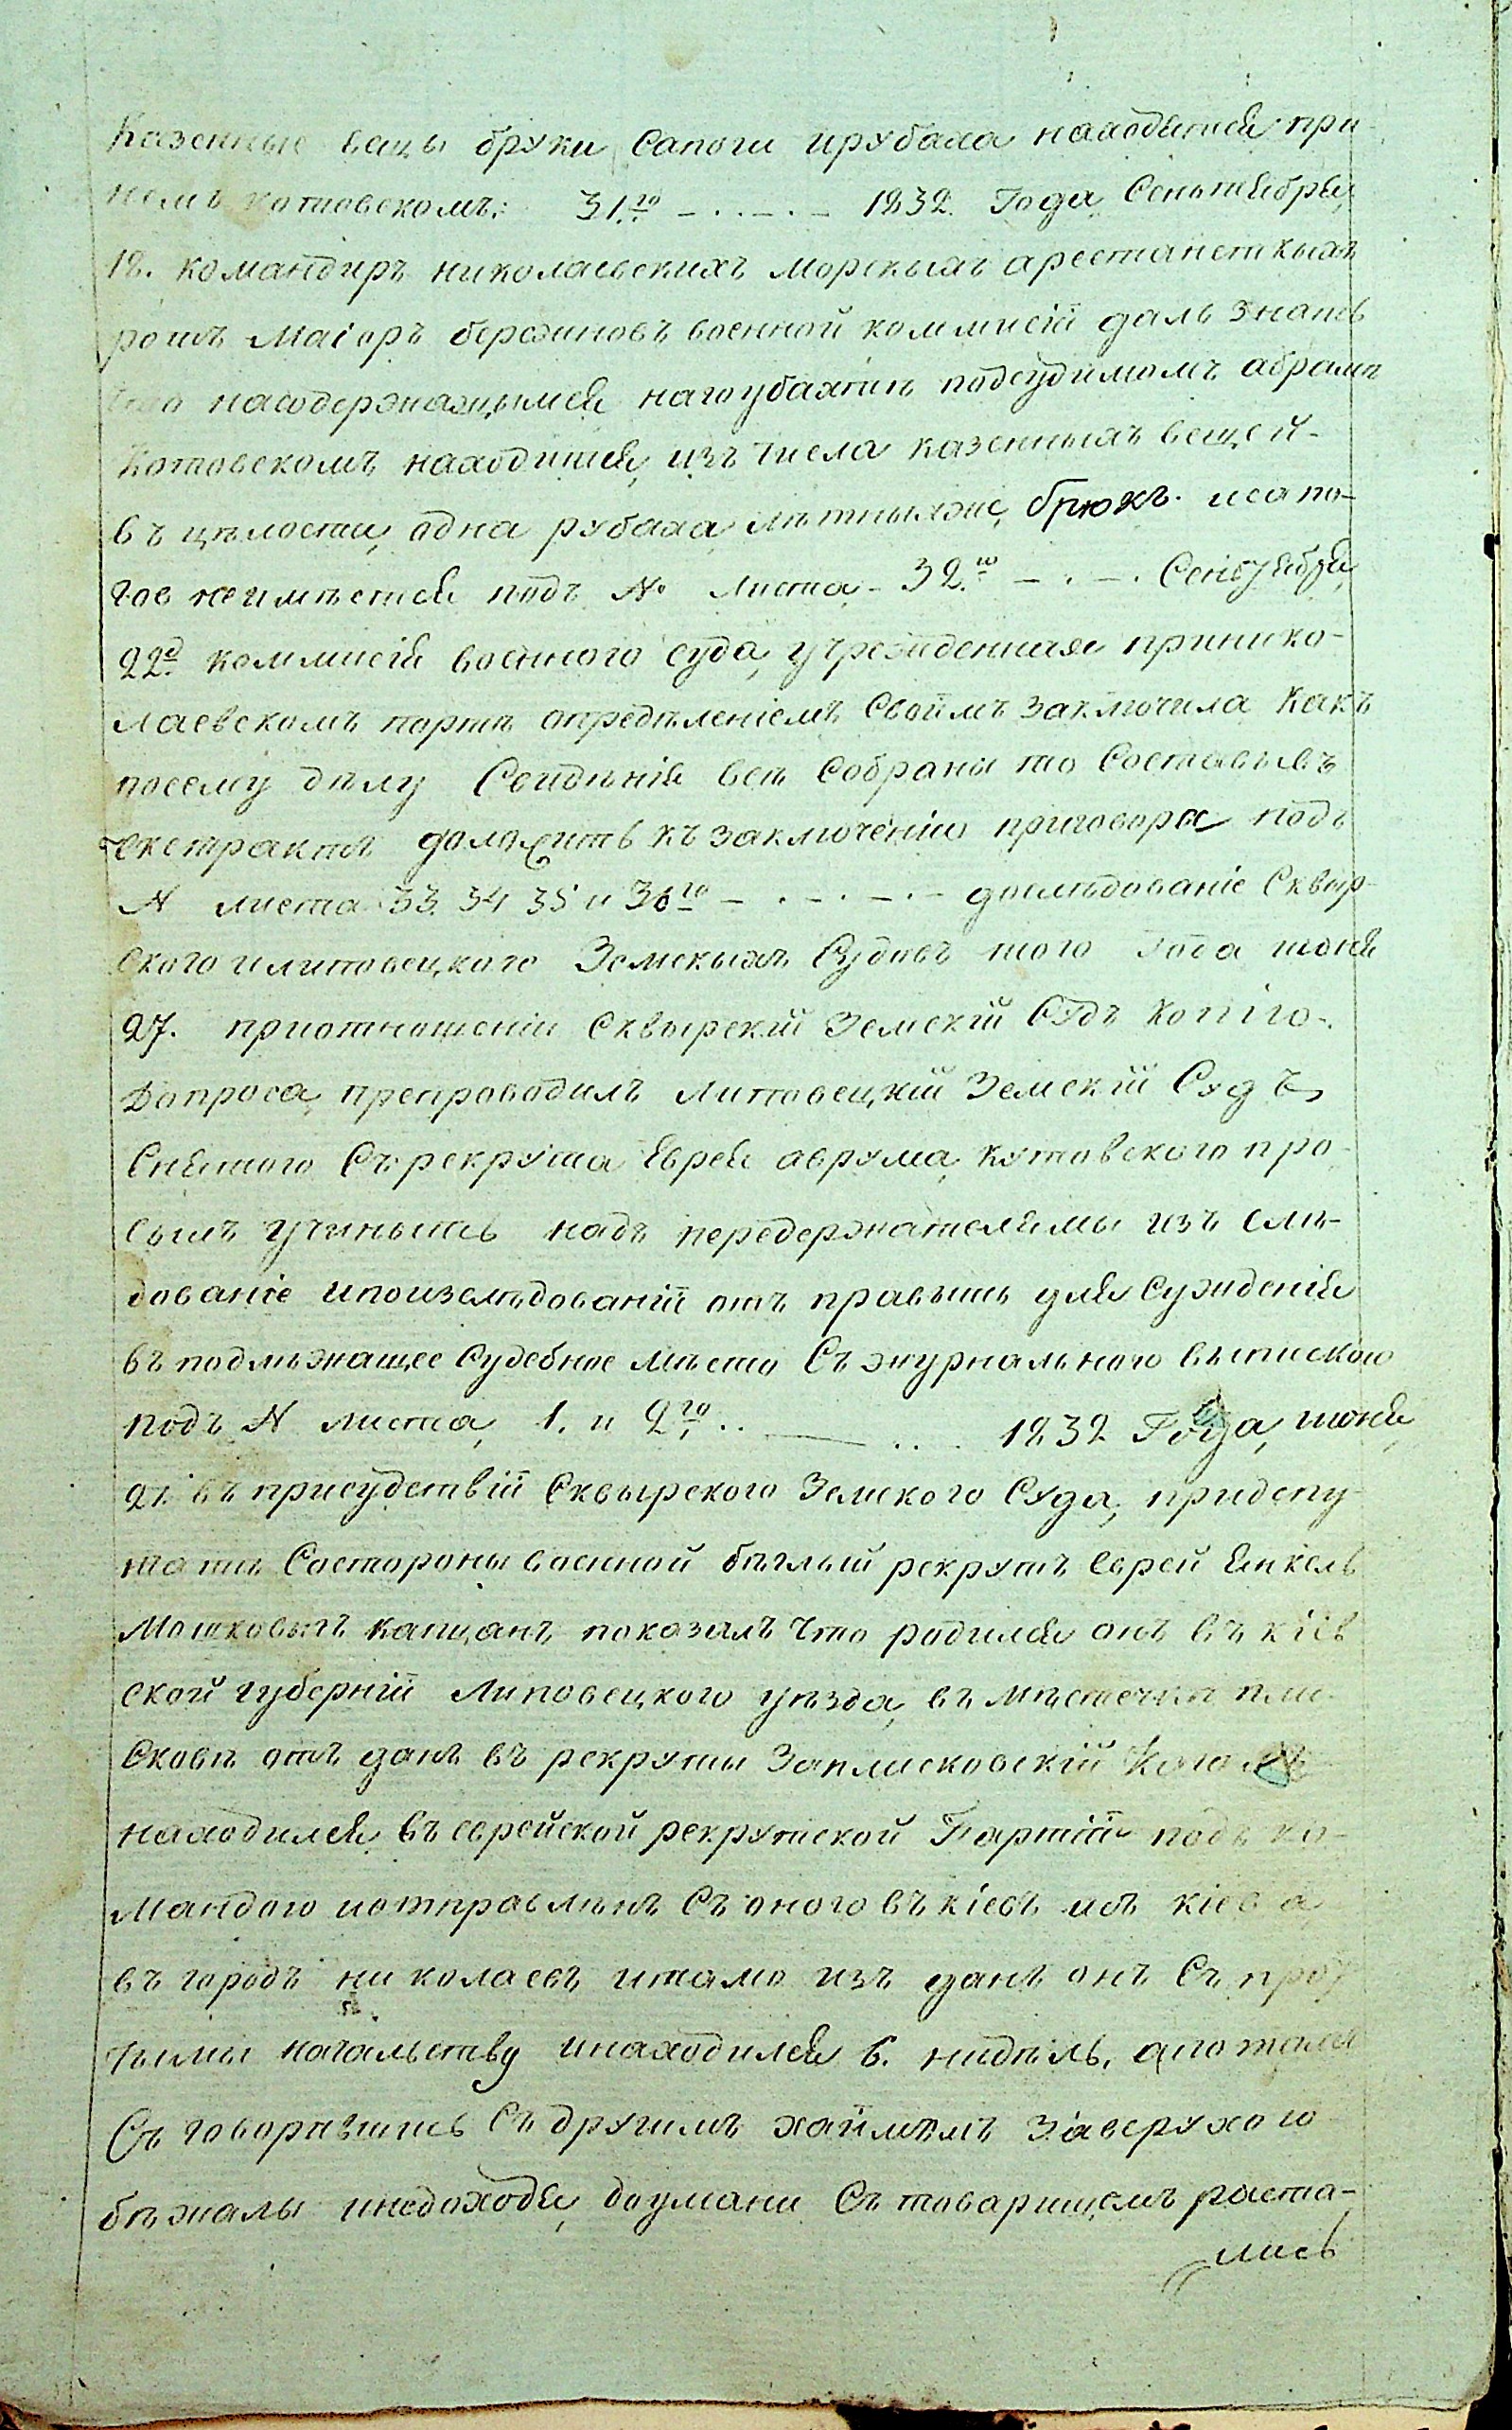 Казенные вещы бруки Сапоги ирубаха находятся при
немъ котовскомъ: 31.го — . . — . — 1832. Года Сеньтября
12. командиръ николаевскихъ Морскыхъ арестанскыхъ
ротъ Маіоръ березиновъ военной коммисіи далъ знать
что насодержащымся нагоубахтѣ подсудимомъ абрамѣ
Котовскомъ находится изъ числа казенныхъ вещей-
въ цѣлости одна рубаха лѣтныхже, брюкъ. исапо-
гов неимѣется подъ № листа - 32.го — . — . Сентября
22д коммисія военного суда учрежденная принико-
лаевскомъ портѣ опредѣленіемъ Своимъ заключила Какъ
посему дѣлу Свидѣнія всѣ Собраны то Составывъ
екстрактъ доложить къ заключенію приговора подъ
№ листа 33. 34 35 и 36го — . — . — . — дослѣдованіе Сквыр-
ского илиповецкого Земскыхъ Судовъ того года июня
27. приотношеніи Сквырскій Земскій Судъ Копію-
Допроса препроводилъ Липовецкій Земскій Судъ
Снятого Съ рекрута Еврея аврума Котовского про-
сылъ учиныть надъ передержателямы изъ слѣ-
дованіе ипоизслѣдованіи отъ правыть для Сужденія
въ подлѣжащее Судебное мѣсто Съ журнальною выпискою
подъ № листа 1. и 2го . . — . . . 1832 Года, июня
21 въ присудствіи Сквырского Земского Суда, придепу-
татѣ Состороны военной бѣглый рекрутъ еврей Янкель
Мошковычъ капцанъ показалъ что родился онъ въ кіев
ской губерніи Липовецкого уѣзда въ мѣстечкѣ пли-
сковѣ отъ данъ въ рекруты Заплисковскій Кагалъ
находился въ еврейской рекрутской Партіи подъ ко-
мандою иотправлѣнъ Съ оного въ кіевъ изъ кіева
въ городъ николаевъ итамо изъ данъ онъ Съ проч
тымы начальству инаходился 6. нѣдѣль, а потомъ
Съ говорывшись Съ другимъ хаймомъ заверухою
бѣжалы инедоходя доумани Съ товарищемъ раста-
лись